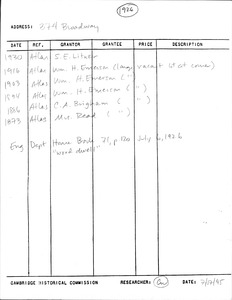 1926
ADDRESS: 374 Broadway
DATE REF. GRANTOR GRANTEE PRICE DESCRIPTION
1930 Atlas S. E. Litz
1916 Atlas Wm. H. Emerson (large vacant lot at corner)
1903 Atlas Wm. H. Emerson (")
1894 Atlas Wm. H. Emerson (")
1886 Atlas C. A. Brigham (")
1873 Atlas Mrs. Read (")
Eng. Dept House Book 31, p. July 1926
"wood dwell"
CAMBRIDGE HISTORICAL COMMISSION RESEARCHER: DATE: 7/12/95